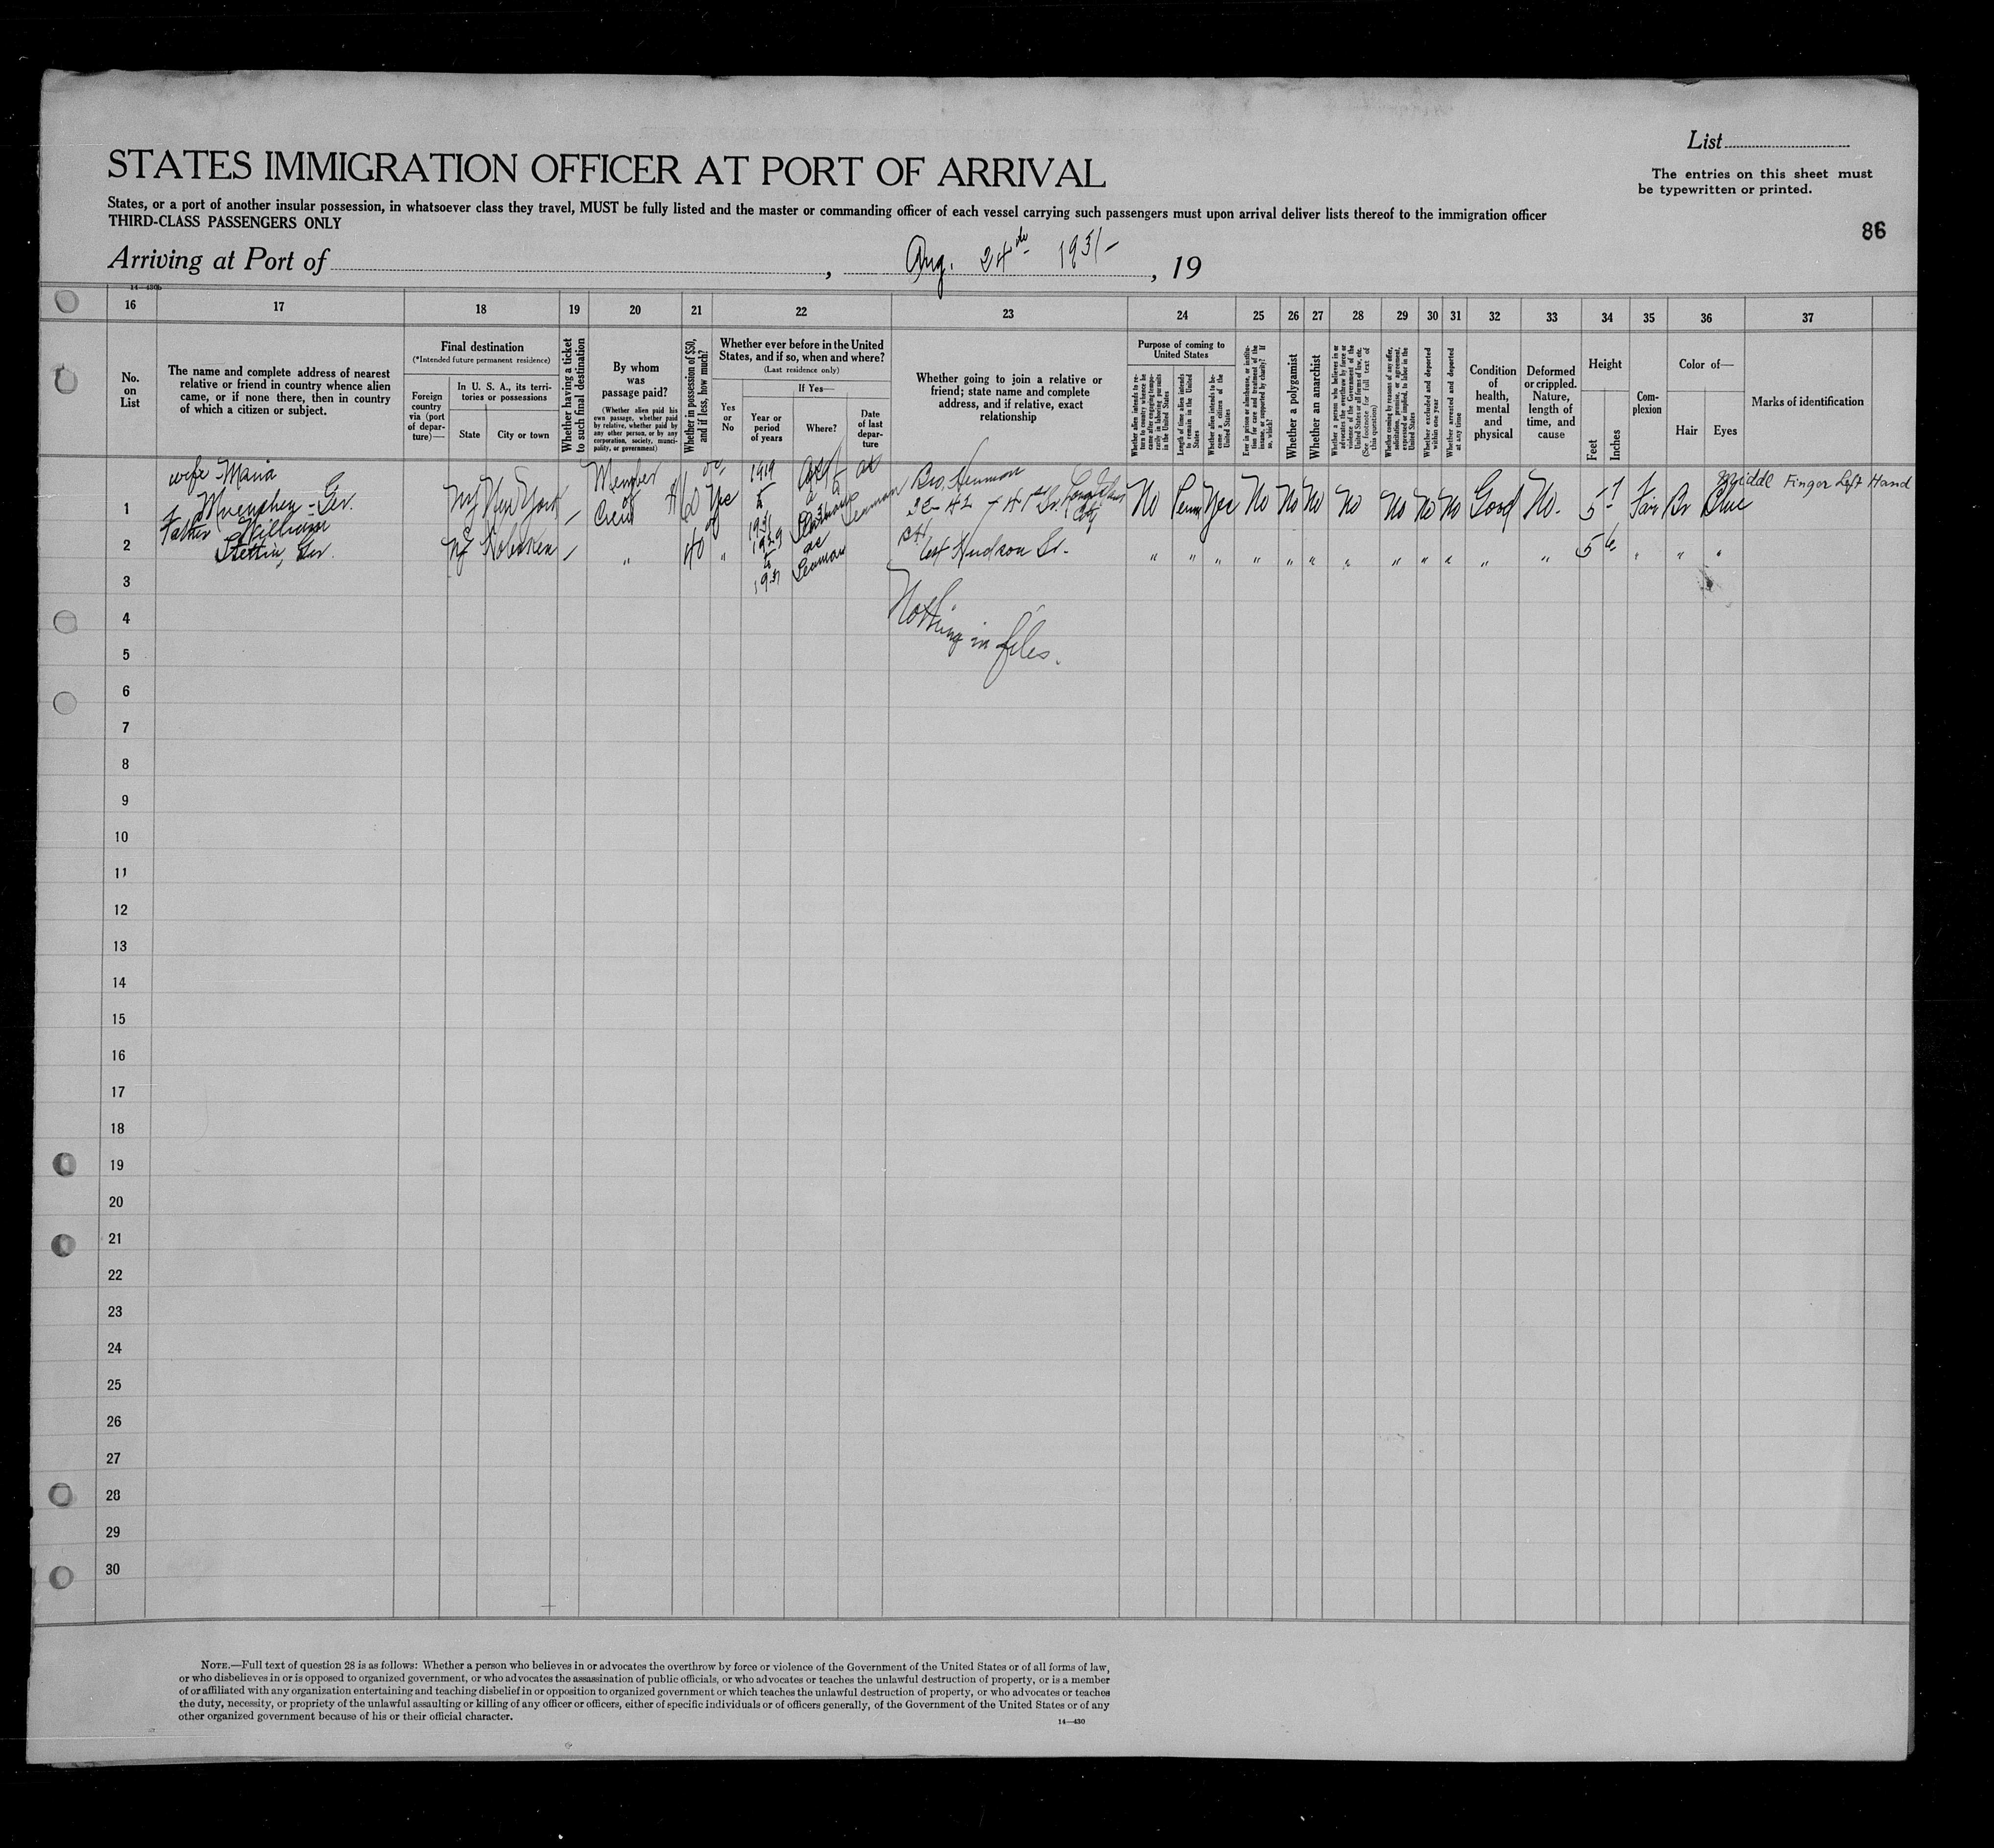 List
The entries on this sheet must
be typewritten or printed.
STATES IMMIGRATION OFFICER AT PORT OF ARRIVAL
States, or a port of another insular possession, in whatsoever class they travel, MUST be fully listed and the master or commanding officer of each vessel carrying such passengers must upon arrival deliver lists thereof to the immigration officer
THIRD-CLASS PASSENGERS ONLY
86
Arriving at Port of , Aug. 24th 1931 , 19
14—430b
16 17 18 19 20 21 22 23 24 25 26 27 28 29 30 31 32 33 34 35 36 37
No.
on
List
The name and complete address of nearest
relative or friend in country whence alien
came, or if none there, then in country
of which a citizen or subject.
Final destination
(*Intended future permanent residence)
Foreign
country
via (port
of depar-
ture)—
In U. S. A., its terri-
tories or possessions
State
City or town
Whether having a ticket
to such final destination
By whom
was
passage paid?
(Whether alien paid his
own passage, whether paid
by relative, whether paid by
any other person, or by any
corporation, society, munici-
pality, or government)
Whether in possession of $50,
and if less, how much?
Whether ever before in the United
States, and if so, when and where?
(Last residence only)
Yes
or
No
If Yes—
Year or
period
of years
Where?
Date
of last
depar-
ture
Whether going to join a relative or
friend; state name and complete
address, and if relative, exact
relationship
Purpose of coming to
United States
Whether alien intends to re-
turn to country whence he
came after engaging tempo-
rarily in laboring pursuits
in the United States
Length of time alien intends
to remain in the United
States
Whether alien intends to be-
come a citizen of the
United States
Ever in prison or almshouse, or institu-
tion for care and treatment of the
insane, or supported by charity? If
so, which?
Whether a polygamist
Whether an anarchist
Whether a person who believes in or
advocates the overthrow by force or
violence of the Government of the
United States or all forms of law, etc.
(See footnote for full text of
this question)
Whether coming by reasons of any offer,
solicitation, promise, or agreement,
expressed or implied, to labor in the
United States
Whether excluded and deported
within one year
Whether arrested and deported
at any time
Condition
of
health,
mental
and
physical
Deformed
or crippled.
Nature,
length of
time, and
cause
Height
Feet
Inches
Com-
plexion
Color of—
Hair
Eyes
Marks of identification
wife Maria
Member of Crew
1919
Bro.
Middl Finger Left Hand
1 Ger. NY New York / Yes Seaman Long Island City No Perm Yes No No No No No No No Good No. 5 7 Fair Br Blue
Father William
2 Stettin, Ger. NJ Hoboken / " 40 " 1929 to 1931 as Seaman Hudson St. " " " " " " " " " " " " 5 6 " " "
3
4 Nothing in files.
5
6
7
8
9
10
11
12
13
14
15
16
17
18
19
20
21
22
23
24
25
26
27
28
29
30
NOTE.—Full text of question 28 is as follows: Whether a person who believes in or advocates the overthrow by force or violence of the Government of the United States or of all forms of law,
or who disbelieves in or is opposed to organized government, or who advocates the assassination of public officials, or who advocates or teaches the unlawful destruction of property, or is a member
of or affiliated with any organization entertaining and teaching disbelief in or opposition to organized government or which teaches the unlawful destruction of property, or who advocates or teaches
the duty, necessity, or propriety of the unlawful assaulting or killing of any officer or officers, either of specific individuals or of officers generally, of the Government of the United States or of any
other organized government because of his or their official character.
14—430